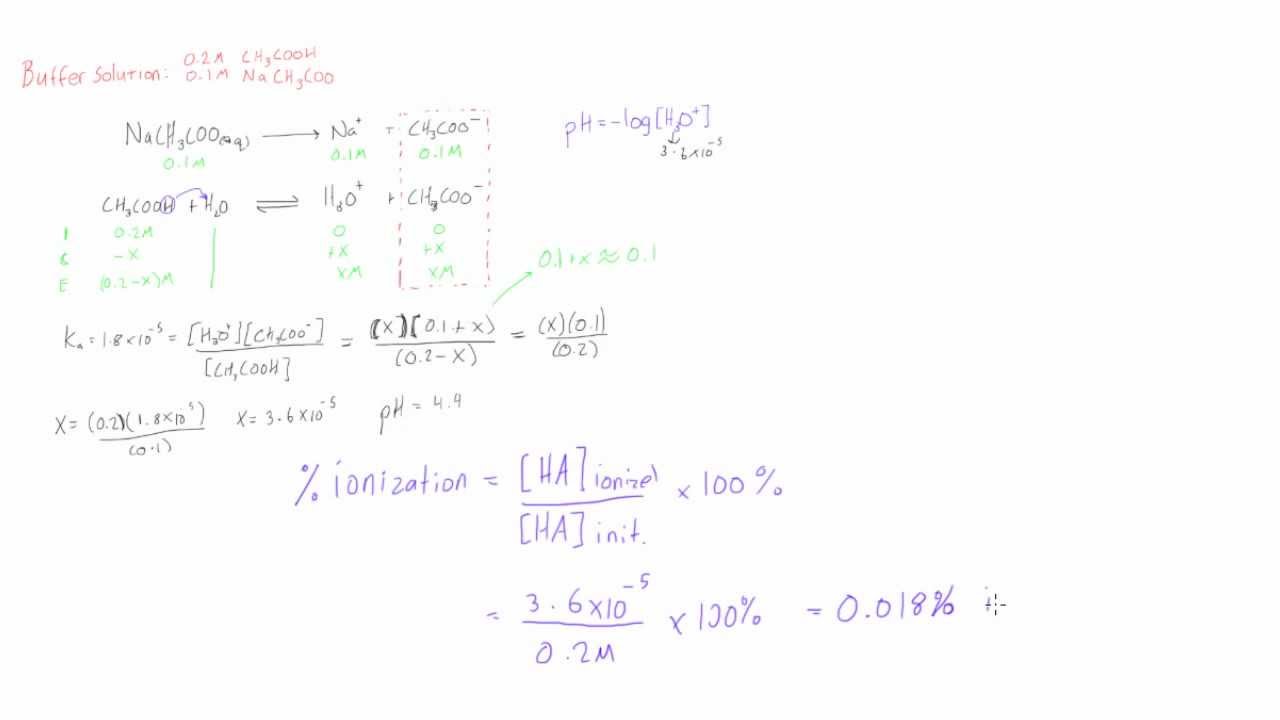 Buffer Solution: 0.2M CH₃COOH
0.1M NaCH₃COO
NaCH₃COO(aq) ⟶ Na⁺ + CH₃COO⁻
0.1M 0.1M 0.1M
pH = -log[H₃O⁺]
3.6×10⁻⁵
CH₃COOH + H₂O ⇌ H₃O⁺ + CH₃COO⁻
I 0.2M 0 0
C -X +X +X
E (0.2-X)M XM XM
0.1+X ≈ 0.1
Ka = 1.8×10⁻⁵ = [H₃O⁺][CH₃COO⁻] / [CH₃COOH] = (X)(0.1+X) / (0.2-X) = (X)(0.1) / (0.2)
X = (0.2)(1.8×10⁻⁵) / (0.1) X = 3.6×10⁻⁵ pH = 4.4
% ionization = [HA]ionized / [HA]init. × 100%
= 3.6×10⁻⁵ / 0.2M × 100% = 0.018% i